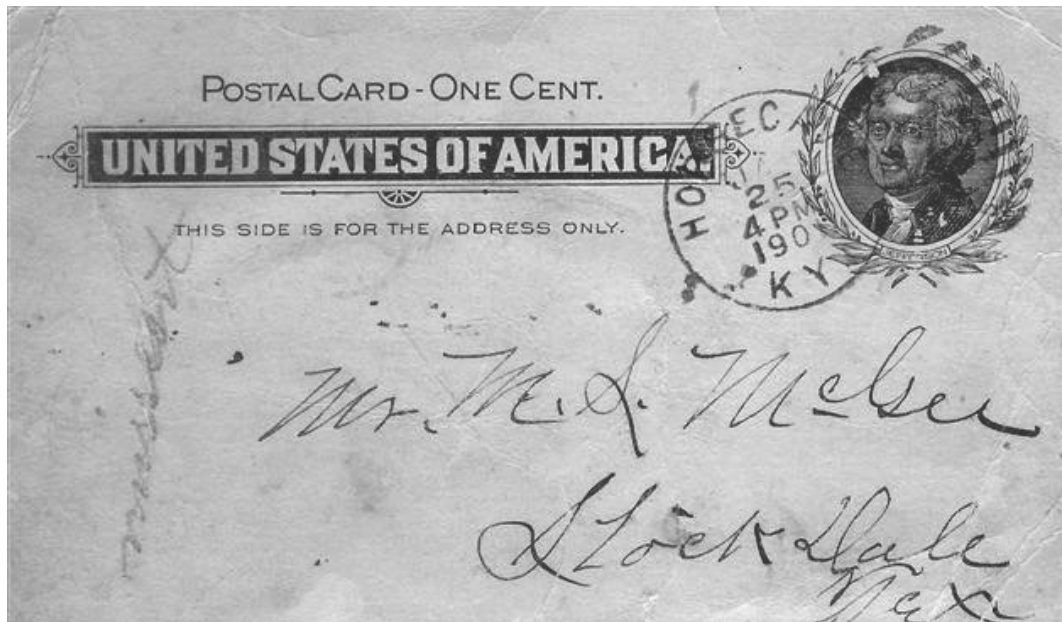 POSTAL CARD - ONE CENT.
UNITED STATES OF AMERICA.
THIS SIDE IS FOR THE ADDRESS ONLY.
25
4 PM
190
KY
JEFFERSON
Mr. M. S. McGee
Stock Dale
Tex